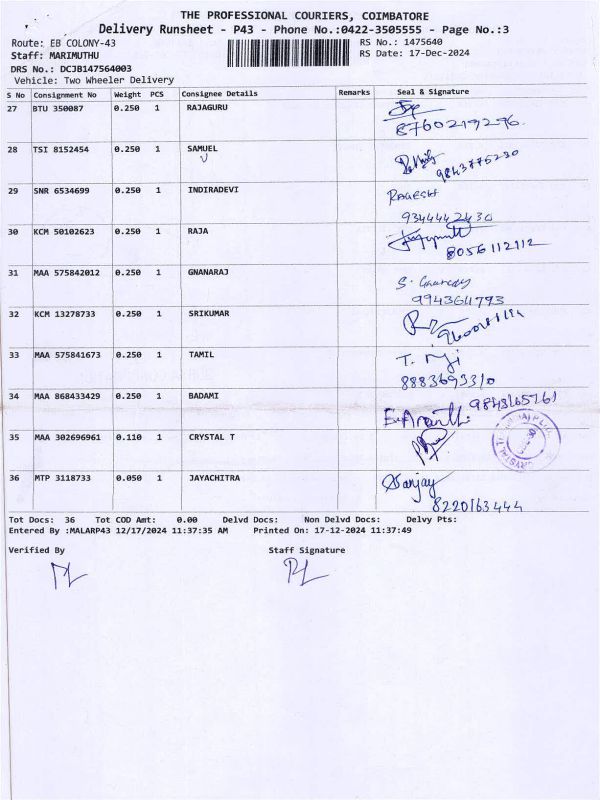 THE PROFESSIONAL COURIERS, COIMBATORE
Delivery Runsheet - P43 - Phone No.:0422-3505555 - Page No.:3
Route: EB COLONY-43 RS No.: 1475640
Staff: MARIMUTHU RS Date: 17-Dec-2024
DRS No.: DCJB147564003
Vehicle: Two Wheeler Delivery
S No Consignment No Weight PCS Consignee Details Remarks Seal & Signature
27 BTU 350087 0.250 1 RAJAGURU
8760219296
28 TSI 8152454 0.250 1 SAMUEL
9843775230
29 SNR 6534699 0.250 1 INDIRADEVI RAGESH
9344442430
30 KCM 50102623 0.250 1 RAJA
8056112112
31 MAA 575842012 0.250 1 GNANARAJ
994364793
32 KCM 13278733 0.250 1 SRIKUMAR
33 MAA 575841673 0.250 1 TAMIL
8883693310
34 MAA 868433429 0.250 1 BADAMI 9843165761
35 MAA 302696961 0.110 1 CRYSTAL T
36 MTP 3118733 0.050 1 JAYACHITRA Sanjay
8220163444
Tot Docs: 36 Tot COD Amt: 0.00 Delvd Docs: Non Delvd Docs: Delvy Pts:
Entered By :MALARP43 12/17/2024 11:37:35 AM Printed On: 17-12-2024 11:37:49
Verified By Staff Signature